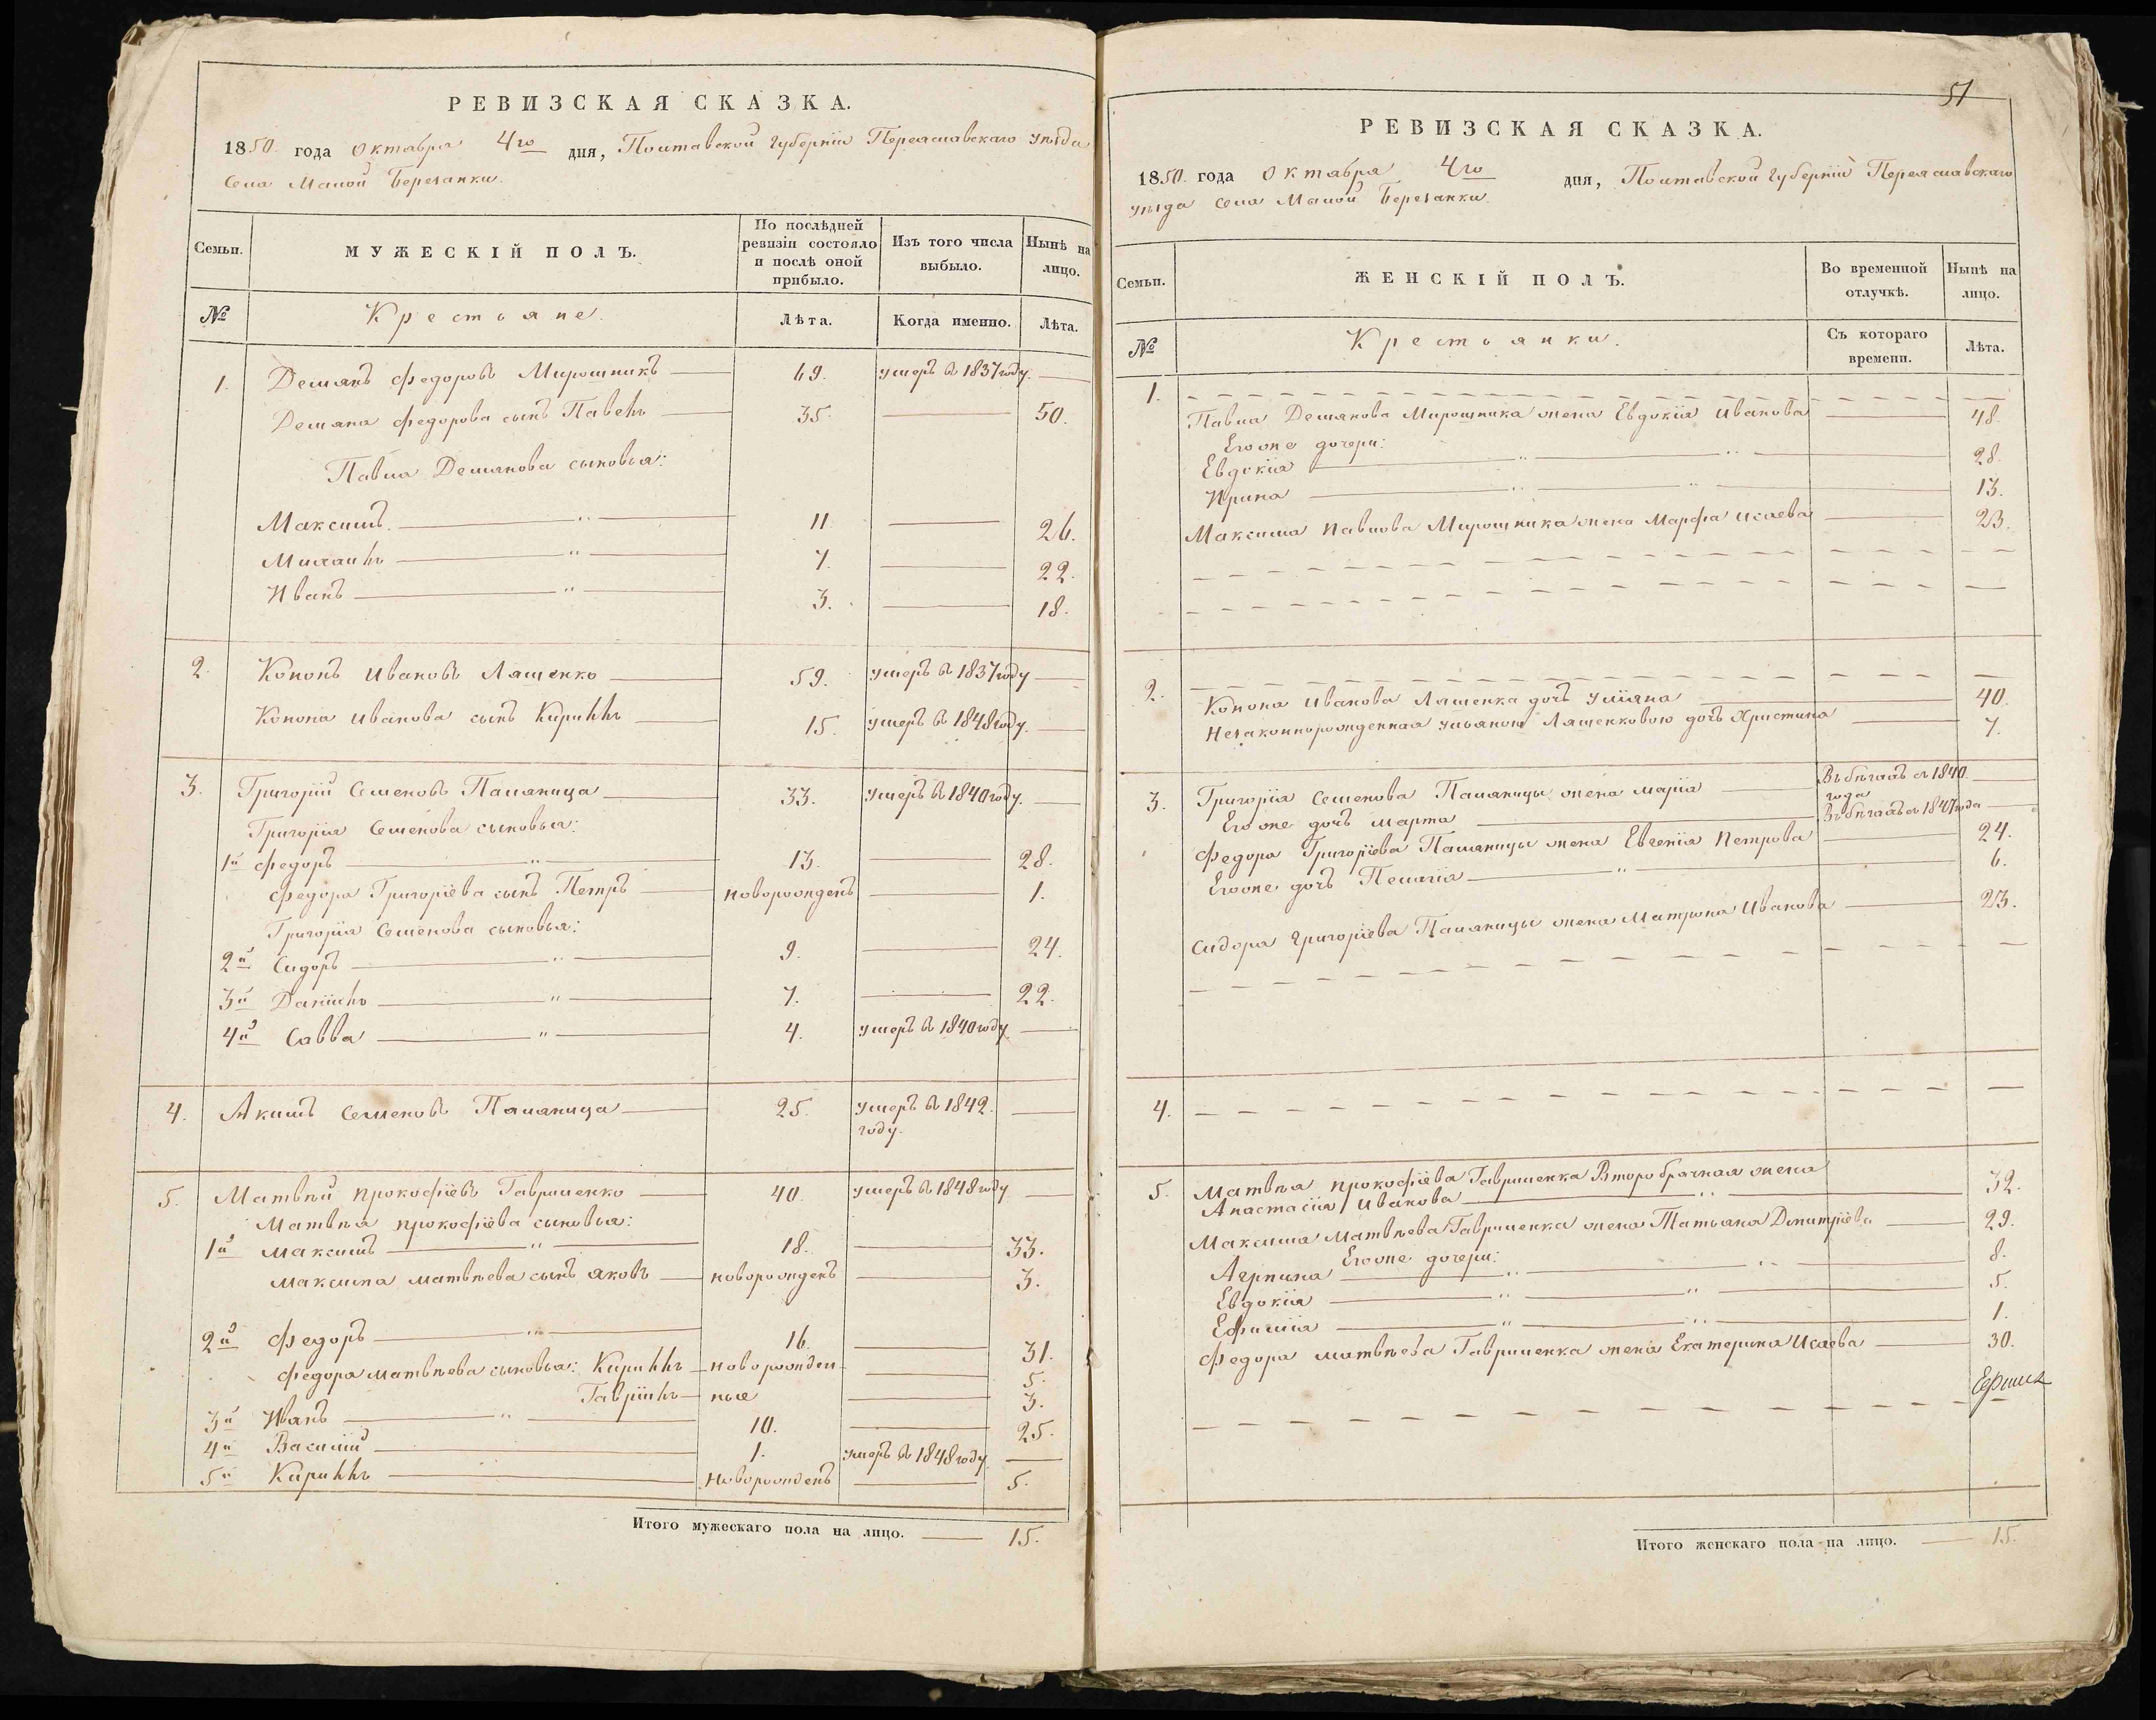 РЕВИЗСКАЯ СКАЗКА.
1850. года Октября 4го дня, Полтавской Губерніи Переяславскаго уѣзда
села Малой Березанки.
Семьи. МУЖЕСКІЙ ПОЛЪ. По послѣдней ревизіи состояло и послѣ оной прибыло. Изъ того числа выбыло. Нынѣ на лицо.
№ Крестьяне. Лѣта. Когда именно. Лѣта.
1. Демянъ Федоровъ Мирошникъ 69. умеръ въ 1837 году.
Демяна Федорова сынъ Павелъ 35. 50.
Павла Демянова сыновья:
Максимъ. " 11. 26.
Милаилъ " 7. 22.
Иванъ " 3. 18.
2. Кононъ Ивановъ Ляшенко 59. умеръ въ 1837 году
Конона Иванова сынъ Кирилъ 15. умеръ въ 1848 году.
3. Григорій Семеновъ Паляница 33. умеръ въ 1840 году.
Григорія Семенова сыновья:
1й Федоръ " 13. 28.
Федора Григоріева сынъ Петръ новорожденъ 1.
Григорія Семенова сыновья:
2й Сидоръ " 9. 24.
3й Даніилъ " 7. 22.
4й Савва " 4. умеръ въ 1840 году.
4. Акимъ Семеновъ Паляница 25. умеръ въ 1842.
году.
5. Матвѣй Прокофіевъ Гавриленко 40. умеръ въ 1848 году
Матвѣя Прокофіева сыновья:
1й Максимъ " 18. 33.
Максима Матвѣева сынъ Яковъ новорожденъ 3.
2й Федоръ " 16. 31.
Федора Матвѣева сыновья: Кирилъ новорожден 5.
Гавріилъ ные 3.
3й Иванъ " 10. 25.
4й Василій 1. умеръ въ 1848 году.
5й Кирилъ новорожденъ 5.
Итого мужескаго пола на лицо. 15.
51
РЕВИЗСКАЯ СКАЗКА.
1850. года Октября 4го дня, Полтавской Губерніи Переяславскаго
уѣзда села Малой Березанки.
Семьи. ЖЕНСКІЙ ПОЛЪ. Во временной отлучкѣ. Нынѣ на лицо.
№ Крестьянки. Съ котораго времени. Лѣта.
1.
Павла Демянова Мирошника жена Евдокія Иванова 48.
Егоже дочери:
Евдокія " " 28.
Ирина " " 13.
Максима Павлова Мирошника жена Марфа Исаева 23.
2.
Конона Иванова Ляшенка дочь Уліяна 40.
Незаконнорожденная Ульяною Ляшенковою дочь Христина 7.
3. Григорія Семенова Паляницы жена Марія Въ бѣгахъ съ 1840.
года
Егоже дочь Марта Въ бѣгахъ съ 1847 года
Федора Григоріева Паляницы жена Евгенія Петрова 24.
Егоже дочь Пелагія " 6.
Сидора Григоріева Паляницы жена Матрона Иванова 23.
4.
5. Матвѣя Прокофіева Гавриленка Второбрачная жена
Анастасія Иванова " 32.
Максима Матвѣева Гавриленка жена Татьяна Дмитріева 29.
Егоже дочери:
Агрипина " " 8.
Евдокія " " 5.
Ефимія " " 1.
Федора Матвѣева Гавриленка жена Екатерина Исаева 30.
Итого женскаго пола на лицо. 15.